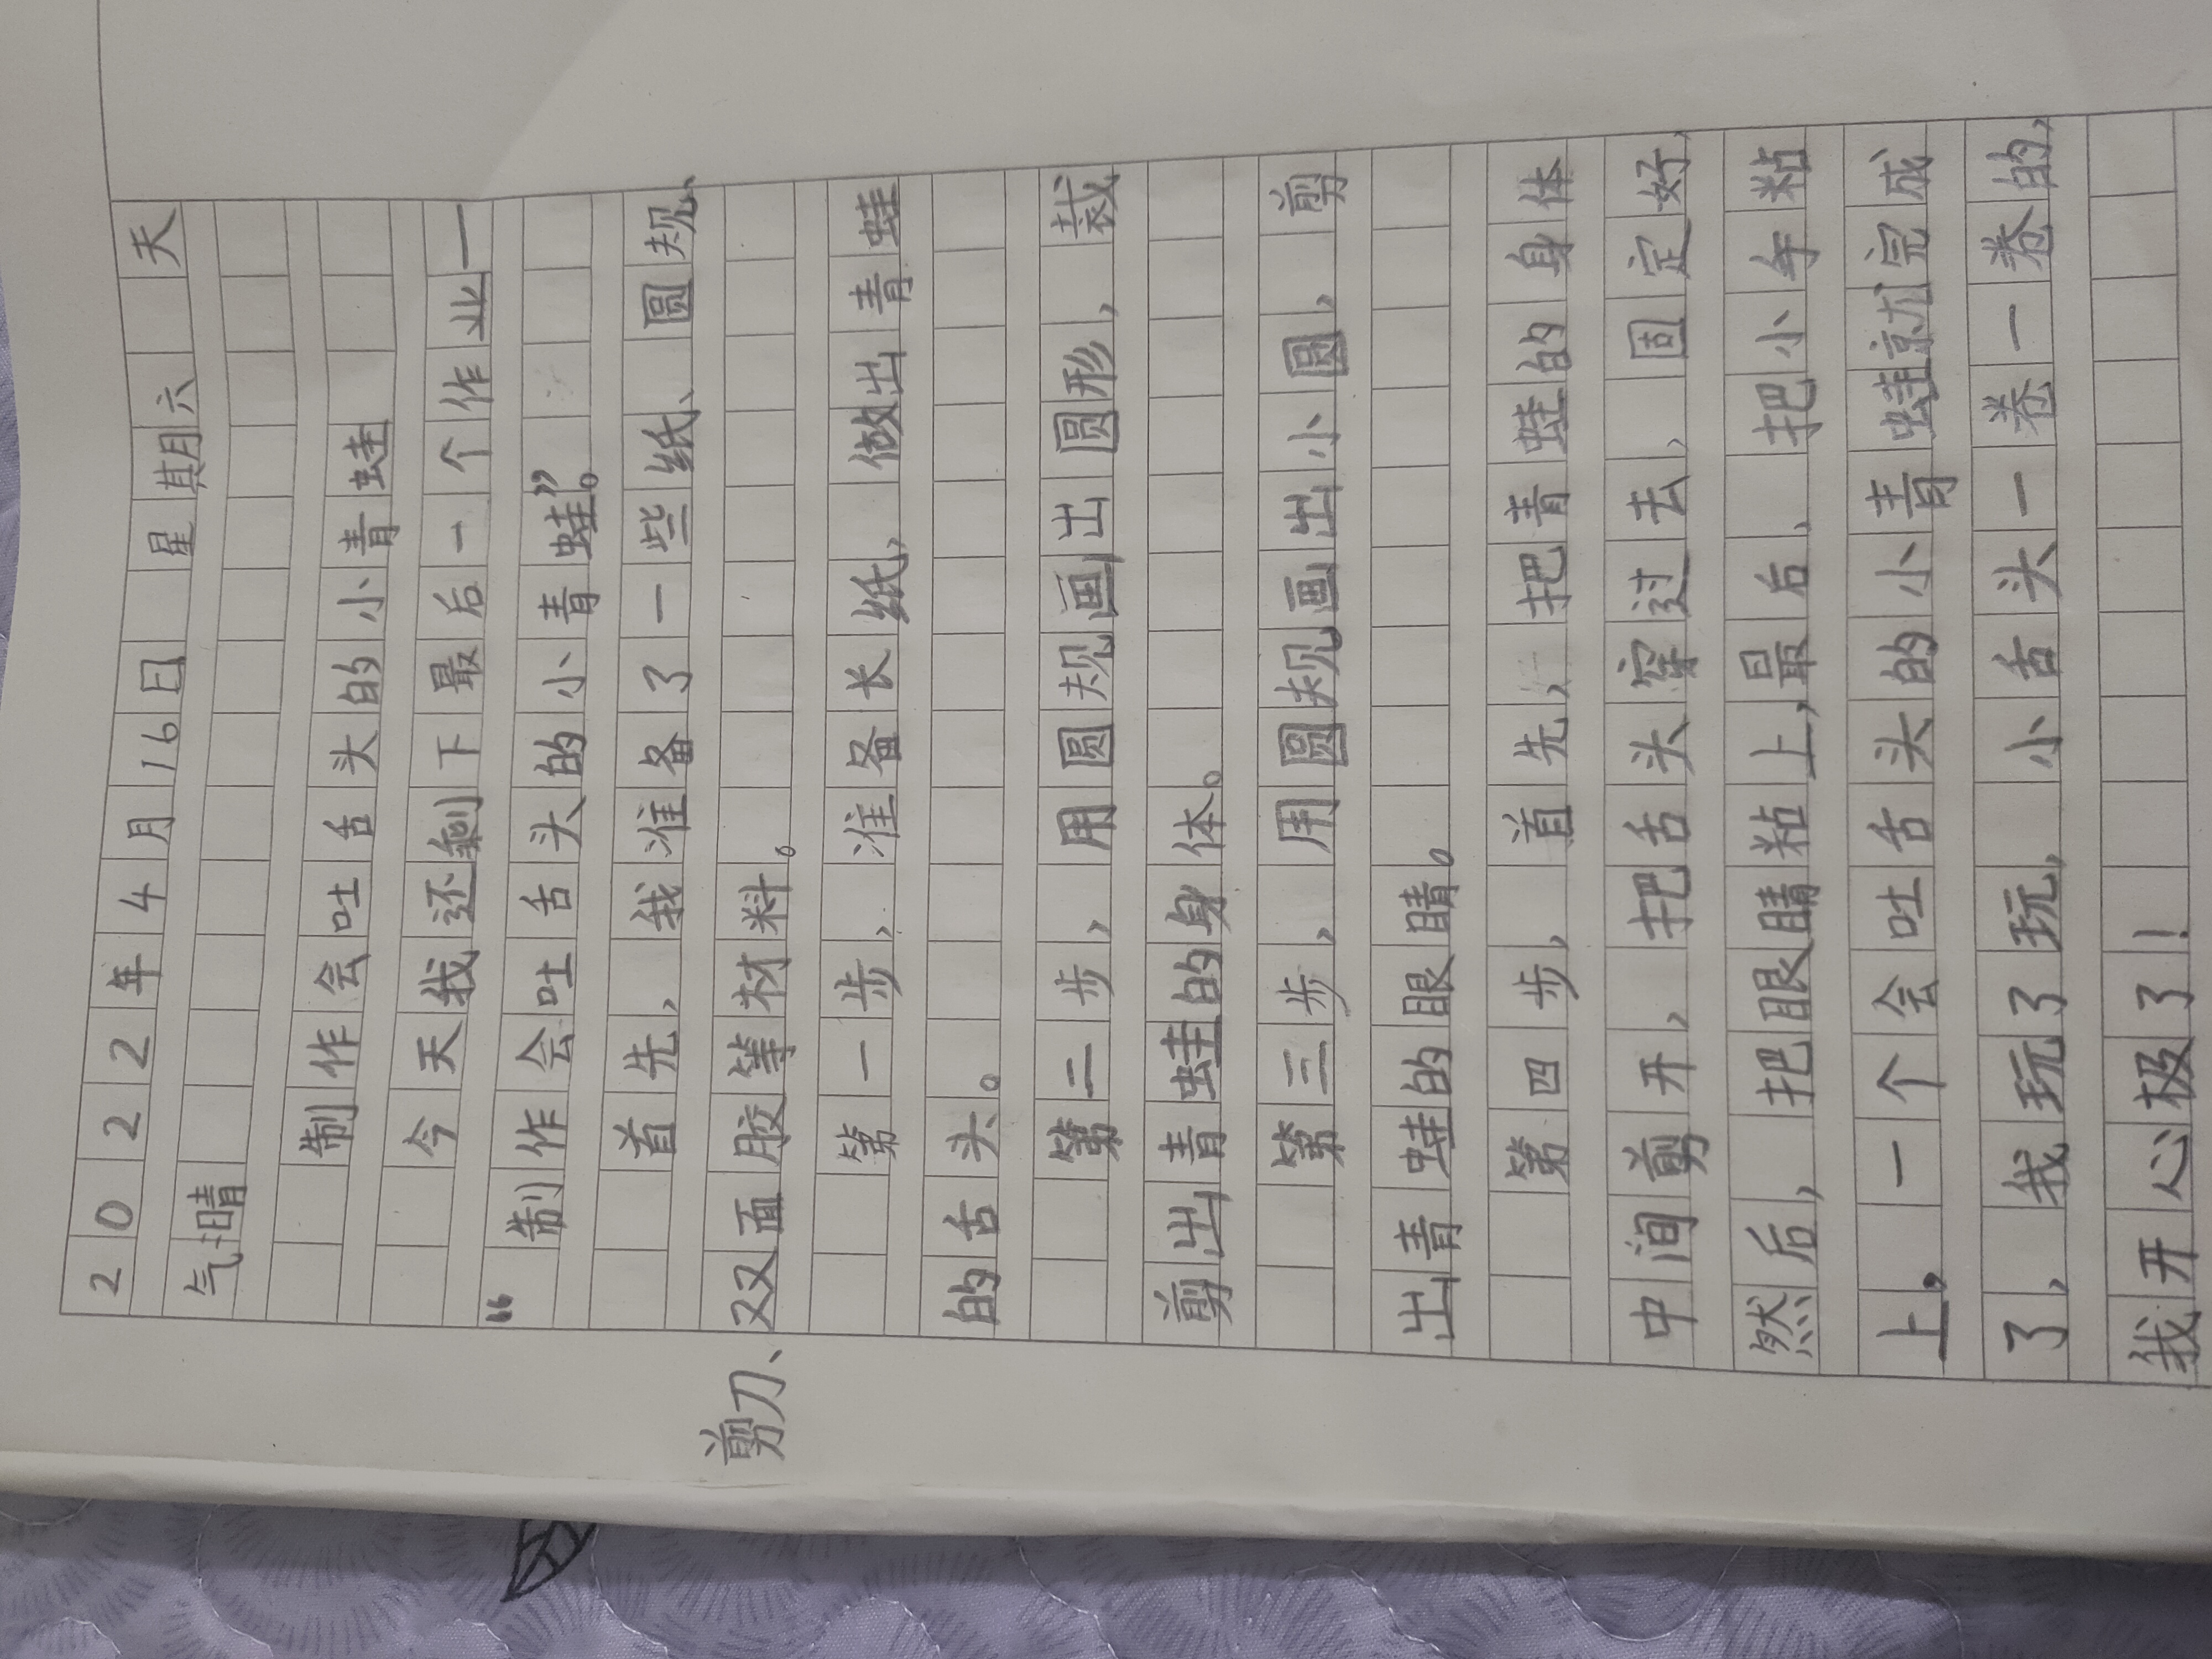 2022年4月16日 星期六 天
气:晴
制作会吐舌头的小青蛙
今天我还剩下最后一个作业—
“制作会吐舌头的小青蛙”。
首先,我准备了一些纸、圆规、
剪刀、双面胶等材料。
第一步,准备长纸,做出青蛙
的舌头。
第二步,用圆规画出圆形,裁
剪出青蛙的身体。
第三步,用圆规画出小圆,剪
出青蛙的眼睛。
第四步,首先,把青蛙的身体
中间剪开,把舌头穿过去,固定好,
然后,把眼睛粘上,最后,把小年粘
上,一个会吐舌头的小青蛙就完成
了,我玩了玩,小舌头一卷一卷的,
我开心极了!